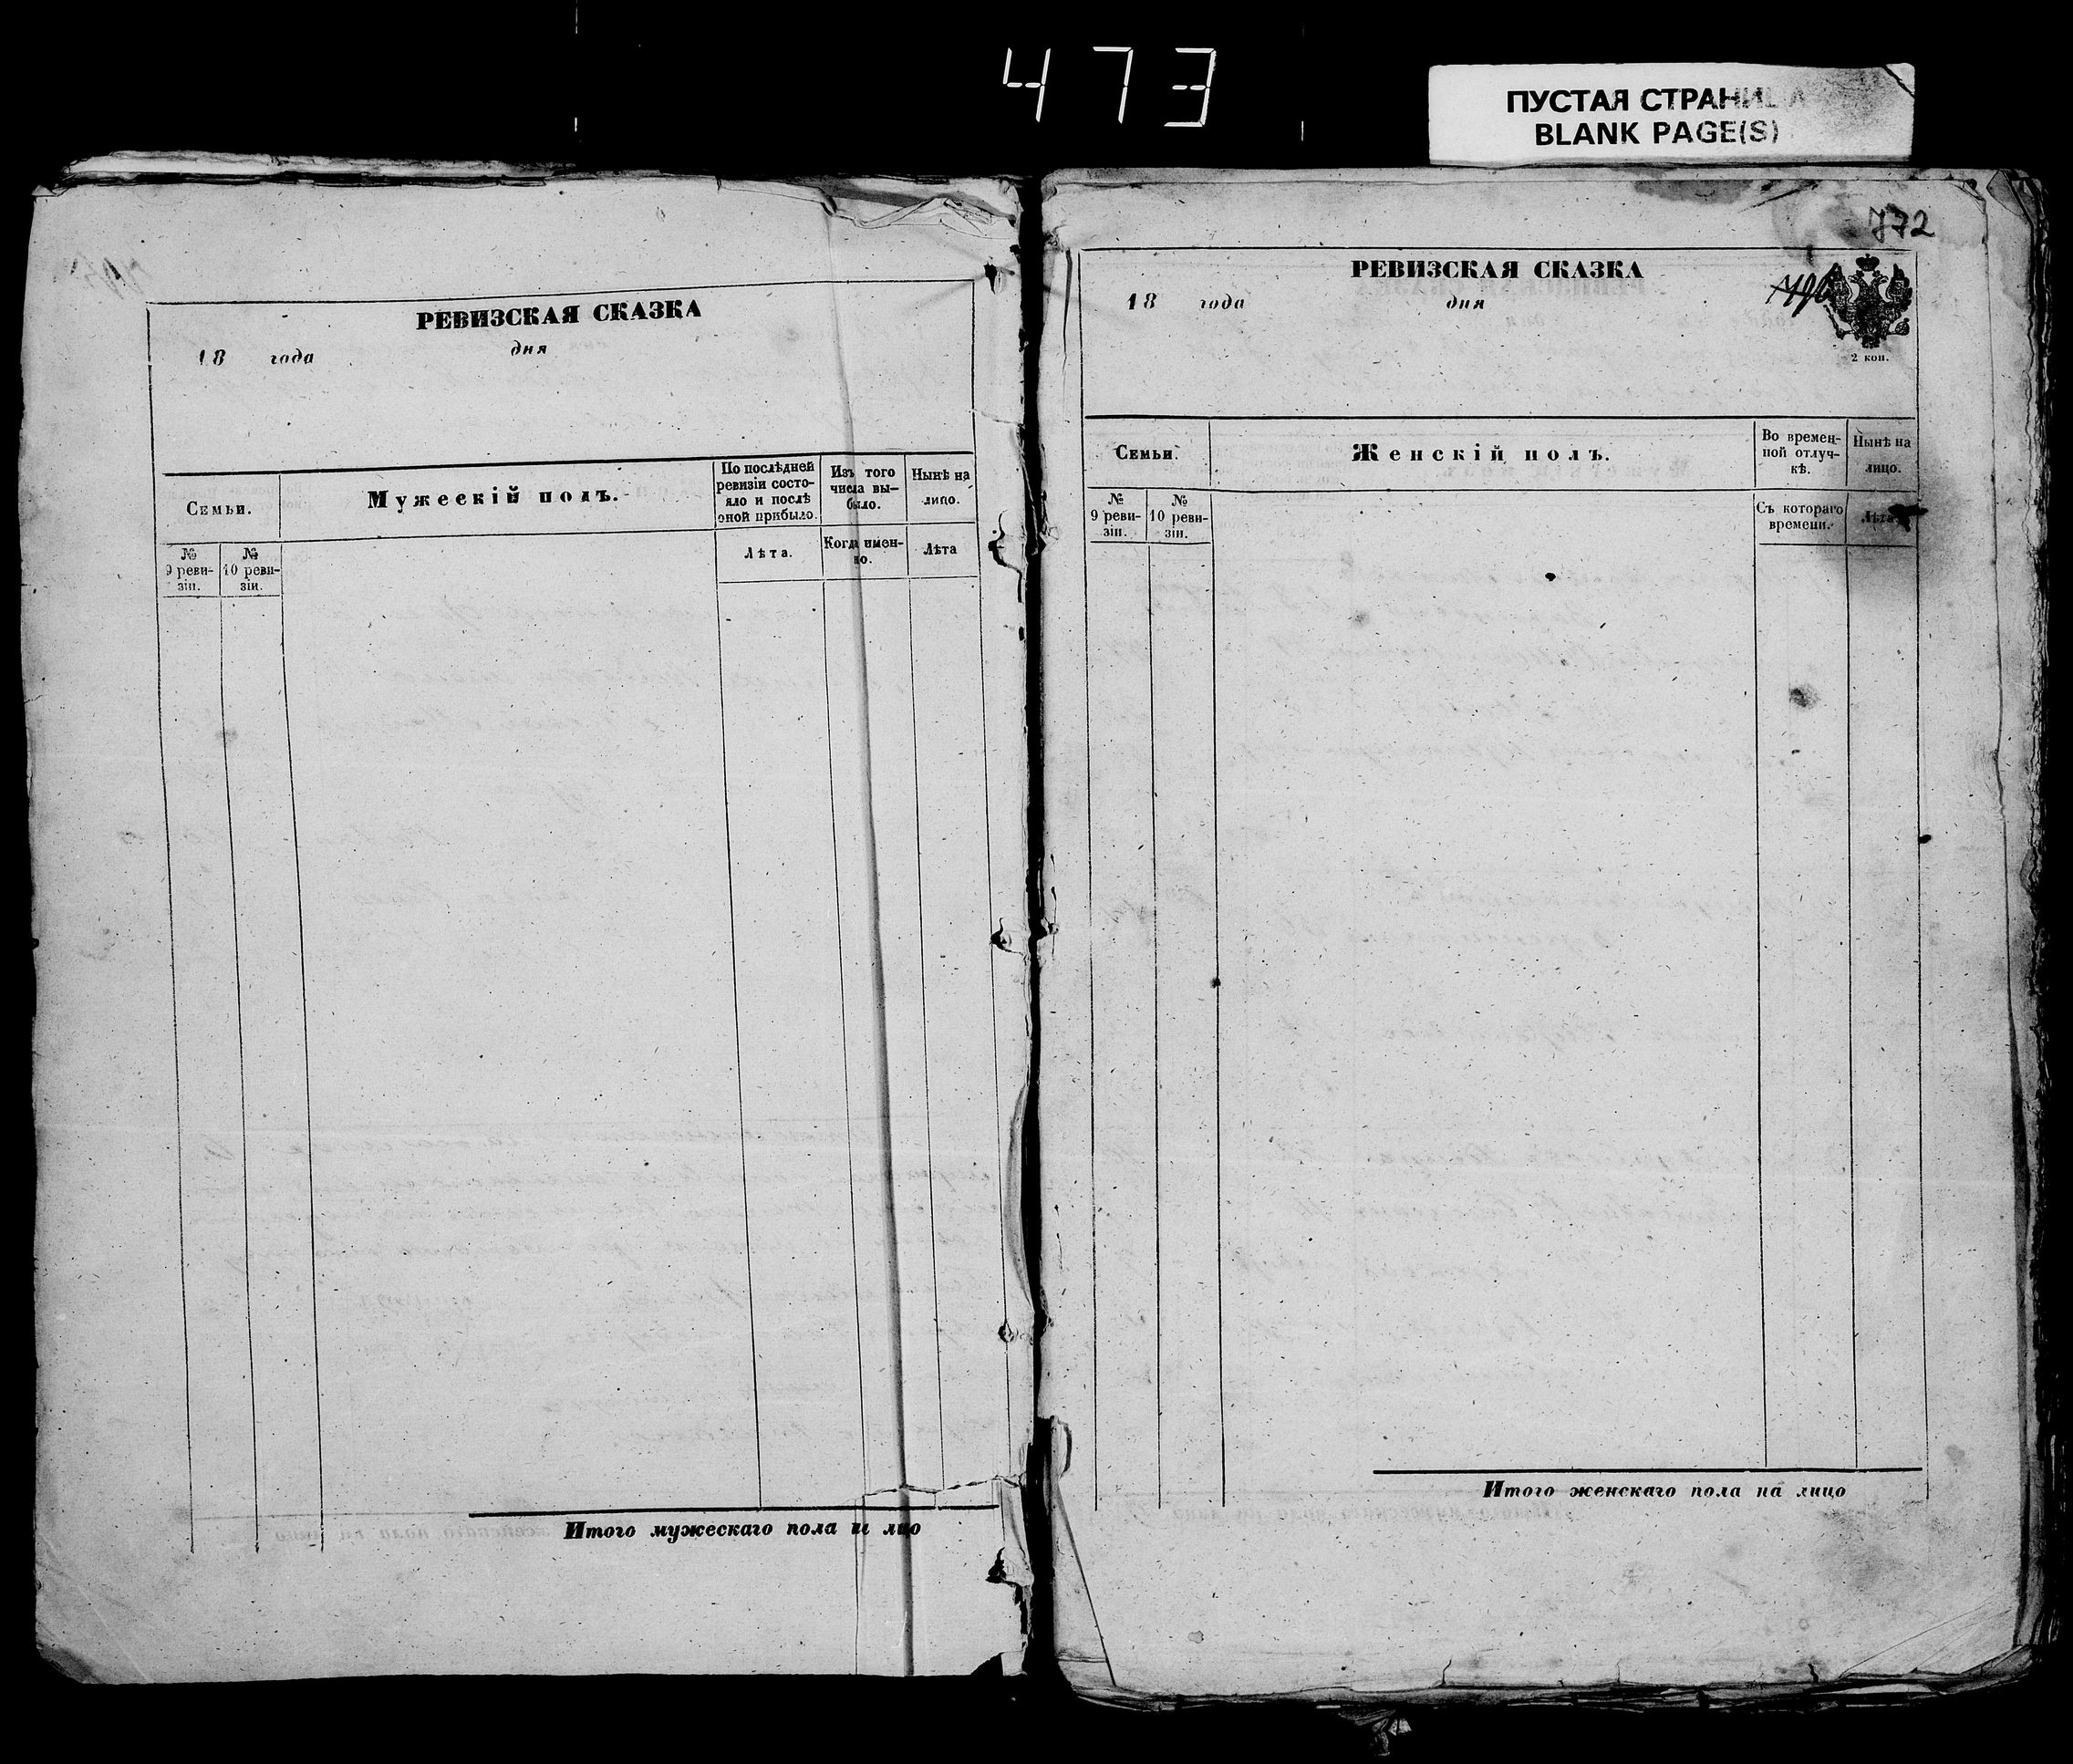 473
ПУСТАЯ СТРАНИЦА
BLANK PAGE(S)
РЕВИЗСКАЯ СКАЗКА
18 года дня
Семьи.
Мужескій полъ.
По послѣдней
ревизіи состо-
яло и послѣ
оной прибыло.
Изъ того
числа вы-
было.
Нынѣ на
лицо.
№
9 реви-
зіи.
№
10 реви-
зіи.
Лѣта.
Когда имен-
но.
Лѣта
Итого мужескаго пола и лицо
772
РЕВИЗСКАЯ СКАЗКА
18 года дня
2 коп.
Семьи.
Женскій полъ.
Во времен-
ной отлуч-
кѣ.
Нынѣ на
лицо.
№
9 реви-
зіи.
№
10 реви-
зіи.
Съ котораго
времени.
Лѣта
Итого женскаго пола на лицо